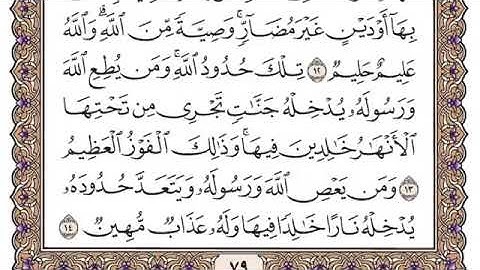 بِهَآ أَوۡ دَيۡنٍ غَيۡرَ مُضَآرّٖۚ وَصِيَّةٗ مِّنَ ٱللَّهِۗ وَٱللَّهُ
عَلِيمٌ حَلِيمٞ ١٢ تِلۡكَ حُدُودُ ٱللَّهِۚ وَمَن يُطِعِ ٱللَّهَ
وَرَسُولَهُۥ يُدۡخِلۡهُ جَنَّٰتٖ تَجۡرِي مِن تَحۡتِهَا
ٱلۡأَنۡهَٰرُ خَٰلِدِينَ فِيهَاۚ وَذَٰلِكَ ٱلۡفَوۡزُ ٱلۡعَظِيمُ
١٣ وَمَن يَعۡصِ ٱللَّهَ وَرَسُولَهُۥ وَيَتَعَدَّ حُدُودَهُۥ
يُدۡخِلۡهُ نَارًا خَٰلِدٗا فِيهَا وَلَهُۥ عَذَابٞ مُّهِينٞ ١٤
٧٩